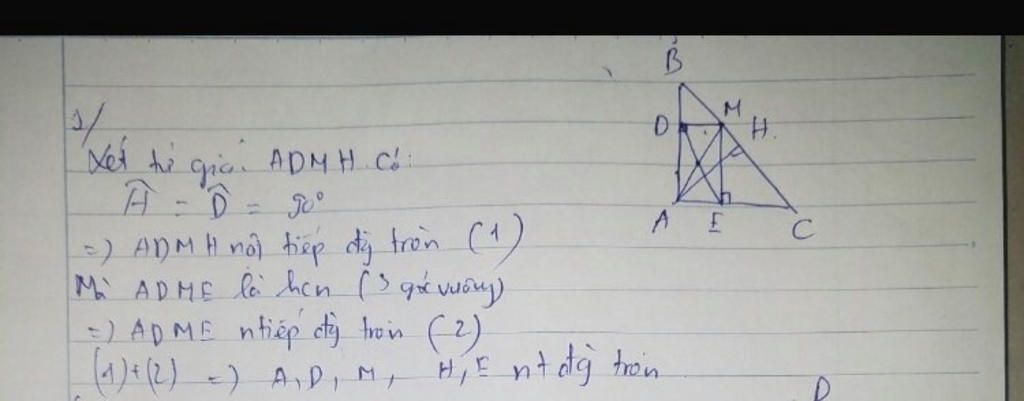 B
1/
D
M
H.
Xét tứ giác ADMH có:
Ĥ = D̂ = 90°
A
E
C
=) ADMH nội tiếp đg tròn (1)
Mà ADME là hcn (3 góc vuông)
=) ADME ntiếp đg tròn (2)
(1)+(2) =) A, D, M, H, E nt đg tròn
D